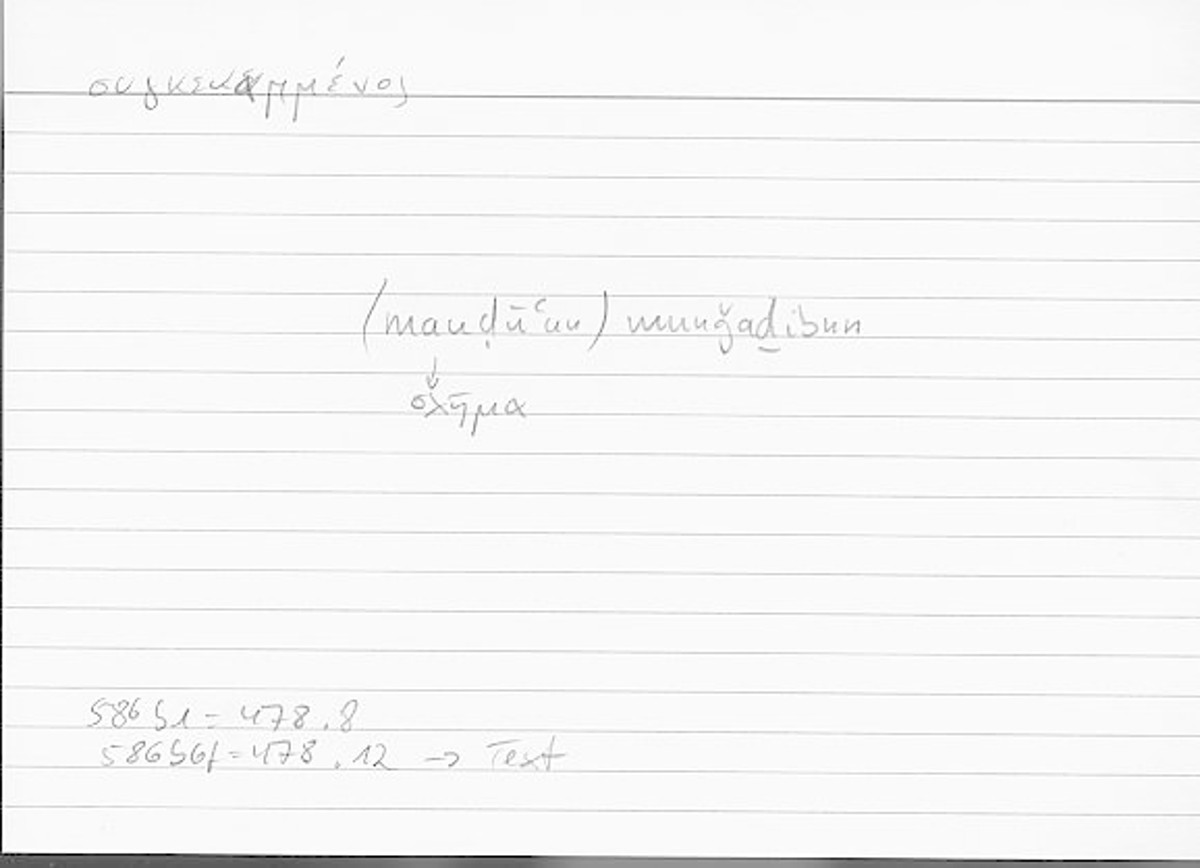 συγκεκαμμένος
(mauḍūʿun) munǧaḏibun
↓
σχῆμα
586b1 = 478.8
586b6f = 478.12 → Text